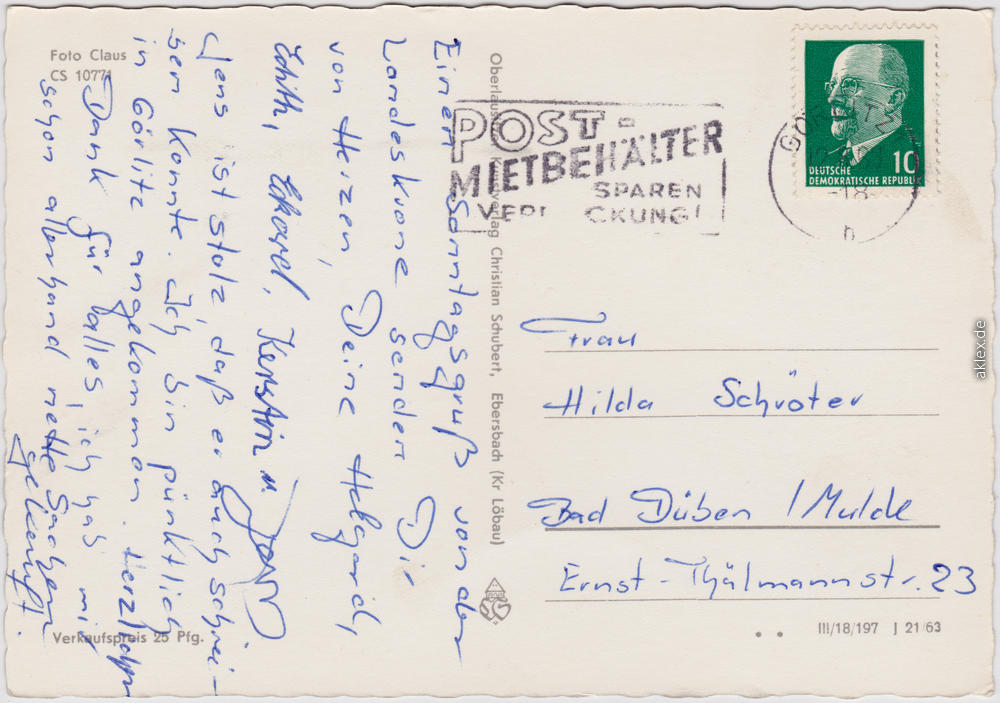 Foto Claus
CS 10771
Einen Sonntagsgruß von der
Landeskrone senden Dir
von Herzen, Deine Helgard,
Edith, Kerstin u. Jens
Jens ist stolz daß er auch schrei-
ben konnte. Ich bin pünktlich
in Görlitz angekommen. Herzlichen
Dank für alles, ich hab mir
schon allerhand nette Sachen
gekauft.
Verkaufspreis 25 Pfg.
Oberlausitzer Kunstverlag Christian Schubert, Ebersbach (Kr Löbau)
POST-
MIETBEHÄLTER
SPAREN
VERPACKUNG!
GÖRLITZ
-18
h
DEUTSCHE
DEMOKRATISCHE REPUBLIK
10
Frau
Hilda Schröter
Bad Düben /Mulde
Ernst-Thälmannstr. 23
III/18/197 J 21/63
aklex.de